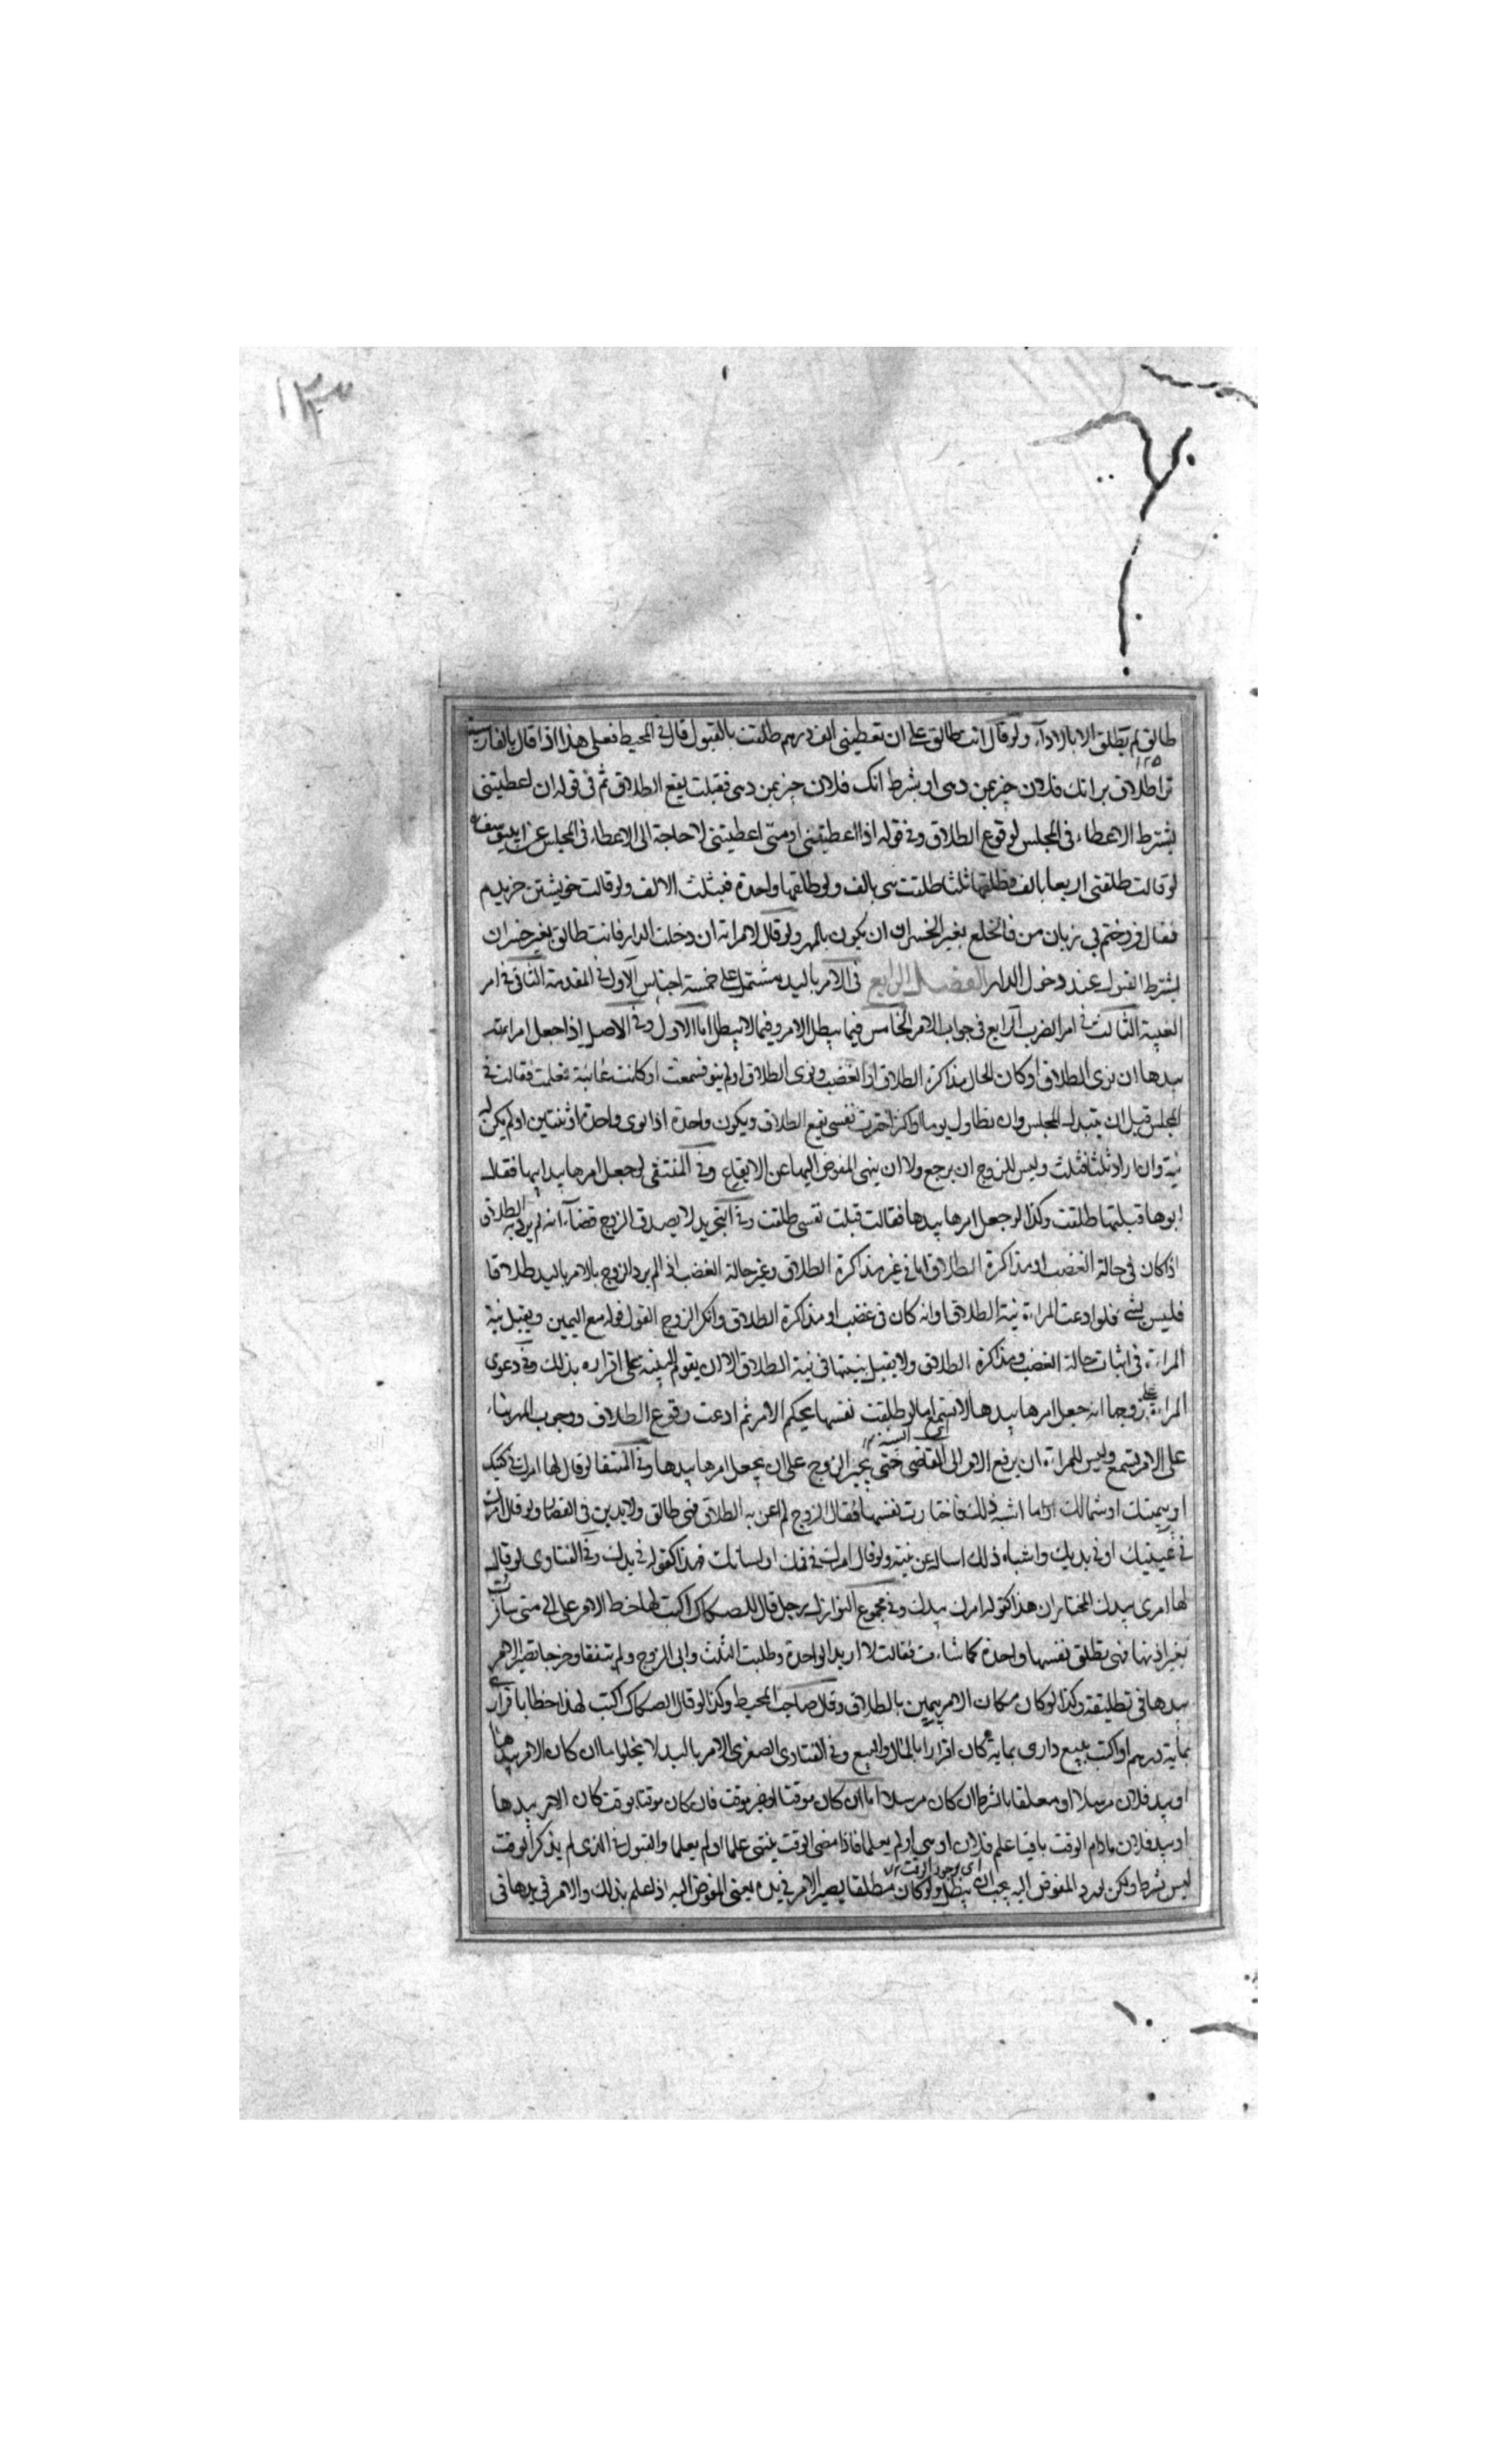 ۱۳۰
طالق لم يطلق الا بالاداء ولو قال انت طالق على ان تعطينى الف درهم طلقت بالقبول قال فى المحيط فعلى هذا اذا قال بالفارسية
ترا طلاق بر انك فلان چيز بمن دهى او بشرط انك فلان چيز بمن دهى فقبلت يقع الطلاق ثم فى قوله ان اعطيتنى
يشترط الاعطاء فى المجلس لوقوع الطلاق وفى قوله اذا اعطيتنى او متى اعطيتنى لا حاجة الى الاعطاء فى المجلس عن ابى يوسف
لو قالت طلقنى اربعا بالف فطلقها ثلثا طلقت هى بالف ولو طلقها واحدة فبثلث الالف ولو قالت خويشتن خريدم
فقال فروختم بى زيان من فالخلع بغير الخسران ان يكون بالمهر ولو قال لامراته ان دخلت الدار فانت طالق بغير خسران
يشترط القبول عند دخول الدار الفصل الرابع فى الامر باليد مشتمل على خمسة اجناس الاول فى المقدمة الثانى فى امر
الغيبة الثالث فى امر الضرب الرابع فى جواب الامر الخامس فيما يبطل الامر وفيما لا يبطل اما الاول وفى الاصل اذا جعل امر امرءته
بيدها ان نوى الطلاق او كان الحال مذاكرة الطلاق او الغضب ونوى الطلاق او لم ينو فسمعت او كانت غائبة فعلمت فقالت فى
المجلس قبل ان يتبدل المجلس وان تطاول يوما او اكثر اخترت نفسى يقع الطلاق ويكون واحدة اذا نوى واحدة او ثنتين او لم يكن له
نية وان اراد ثلثا فثلث وليس للزوج ان يرجع ولا ان ينهى المفوض اليها عن الايقاع وفى المنتقى لو جعل امرها بيد ابيها فقال
ابوها قبلتها طلقت وكذا لو جعل امرها بيدها فقالت قبلت نفسى طلقت وفى التجريد لا يصدق الزوج قضاء انه لم يرد به الطلاق
اذا كان فى حالة الغضب او مذاكرة الطلاق اما فى غير مذاكرة الطلاق وغير حالة الغضب اذا لم يرد الزوج بالامر باليد طلاقا
فليس بشى فلو ادعت المراءة نية الطلاق او انه كان فى غضب او مذاكرة الطلاق وانكر الزوج القول قوله مع اليمين ويقبل بينة
المراءة فى اثبات حالة الغضب ومذاكرة الطلاق ولا يقبل بينتها فى نية الطلاق الا ان يقوم البينة على اقراره بذلك وفى دعوى
المراءة على زوجها انه جعل امرها بيدها لا تسمع اما لو طلقت نفسها بحكم الامر ثم ادعت وقوع الطلاق ووجوب المهر بناء
على الامر يسمع وليس للمراءة ان يرفع الامر الى القاضى حتى يجبر الزوج على ان يجعل امرها بيدها وفى المنتقا لو قال لها امرك فى كفيك
او يمينك او شمالك او ما اشبه ذلك فاختارت نفسها فقال الزوج لم اعن به الطلاق فهى طالق ولا يدين فى القضاء ولو قال امرك
فى عينيك او فى يديك واشباه ذلك اساله عن نيته ولو قال امرك فى فمك او لسانك فهذا كقوله فى يدك وفى الفتاوى لو قال
لها امرى بيدك المختار ان هذا كقوله امرك بيدك وفى مجموع النوازل رجل قال للصكاك اكتب لها خط الامر على انى متى سافرت
بغير اذنها فهى تطلق نفسها واحدة كما شاءت فقالت لا اريد الواحدة وطلبت الثلث وابى الزوج ولم يتفقا وخرجا يصير الامر
بيدها فى تطليقة وكذا لو كان مكان الامر يمين بالطلاق وقال صاحب المحيط وكذا لو قال للصكاك اكتب لهذا خطا باقرارى
بماية درهم او اكتب ببيع دارى بماية كان اقرارا بالمال والبيع وفى الفتاوى الصغرى الامر باليد لا يخلوا ما ان كان الامر بيدها
او بيد فلان مرسلا او معلقا بالشرط ان كان مرسلا اما ان كان موقتا او غير موقت فان كان موقتا بوقت كان الامر بيدها
او بيد فلان ما دام الوقت باقيا علم فلان او هى او لم يعلما فاذا مضى الوقت ينتهى علما او لم يعلما والقبول فى الذى لم يذكر الوقت
ليس بشرط ولكن لو رد المفوض اليه يجب ان يبطل ولو كان مطلقا يصير الامر فى يده يعنى المفوض اليه اذا علم بذلك والامر فى يدها فى